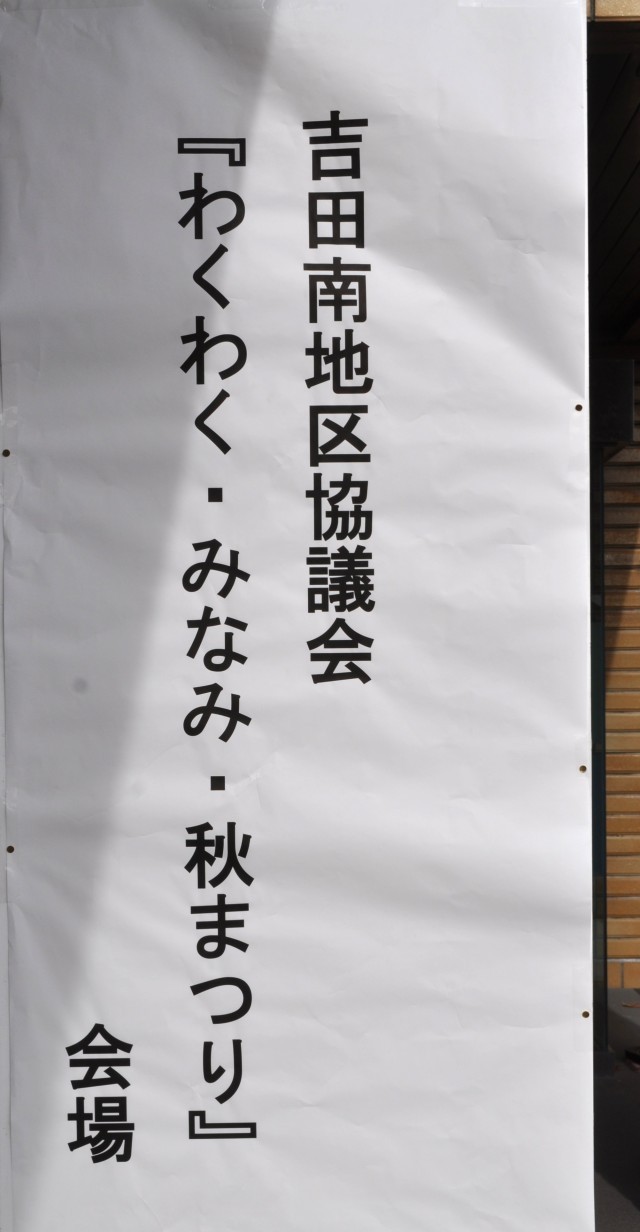 吉田南地区協議会
『わくわく・みなみ・秋まつり』
会場